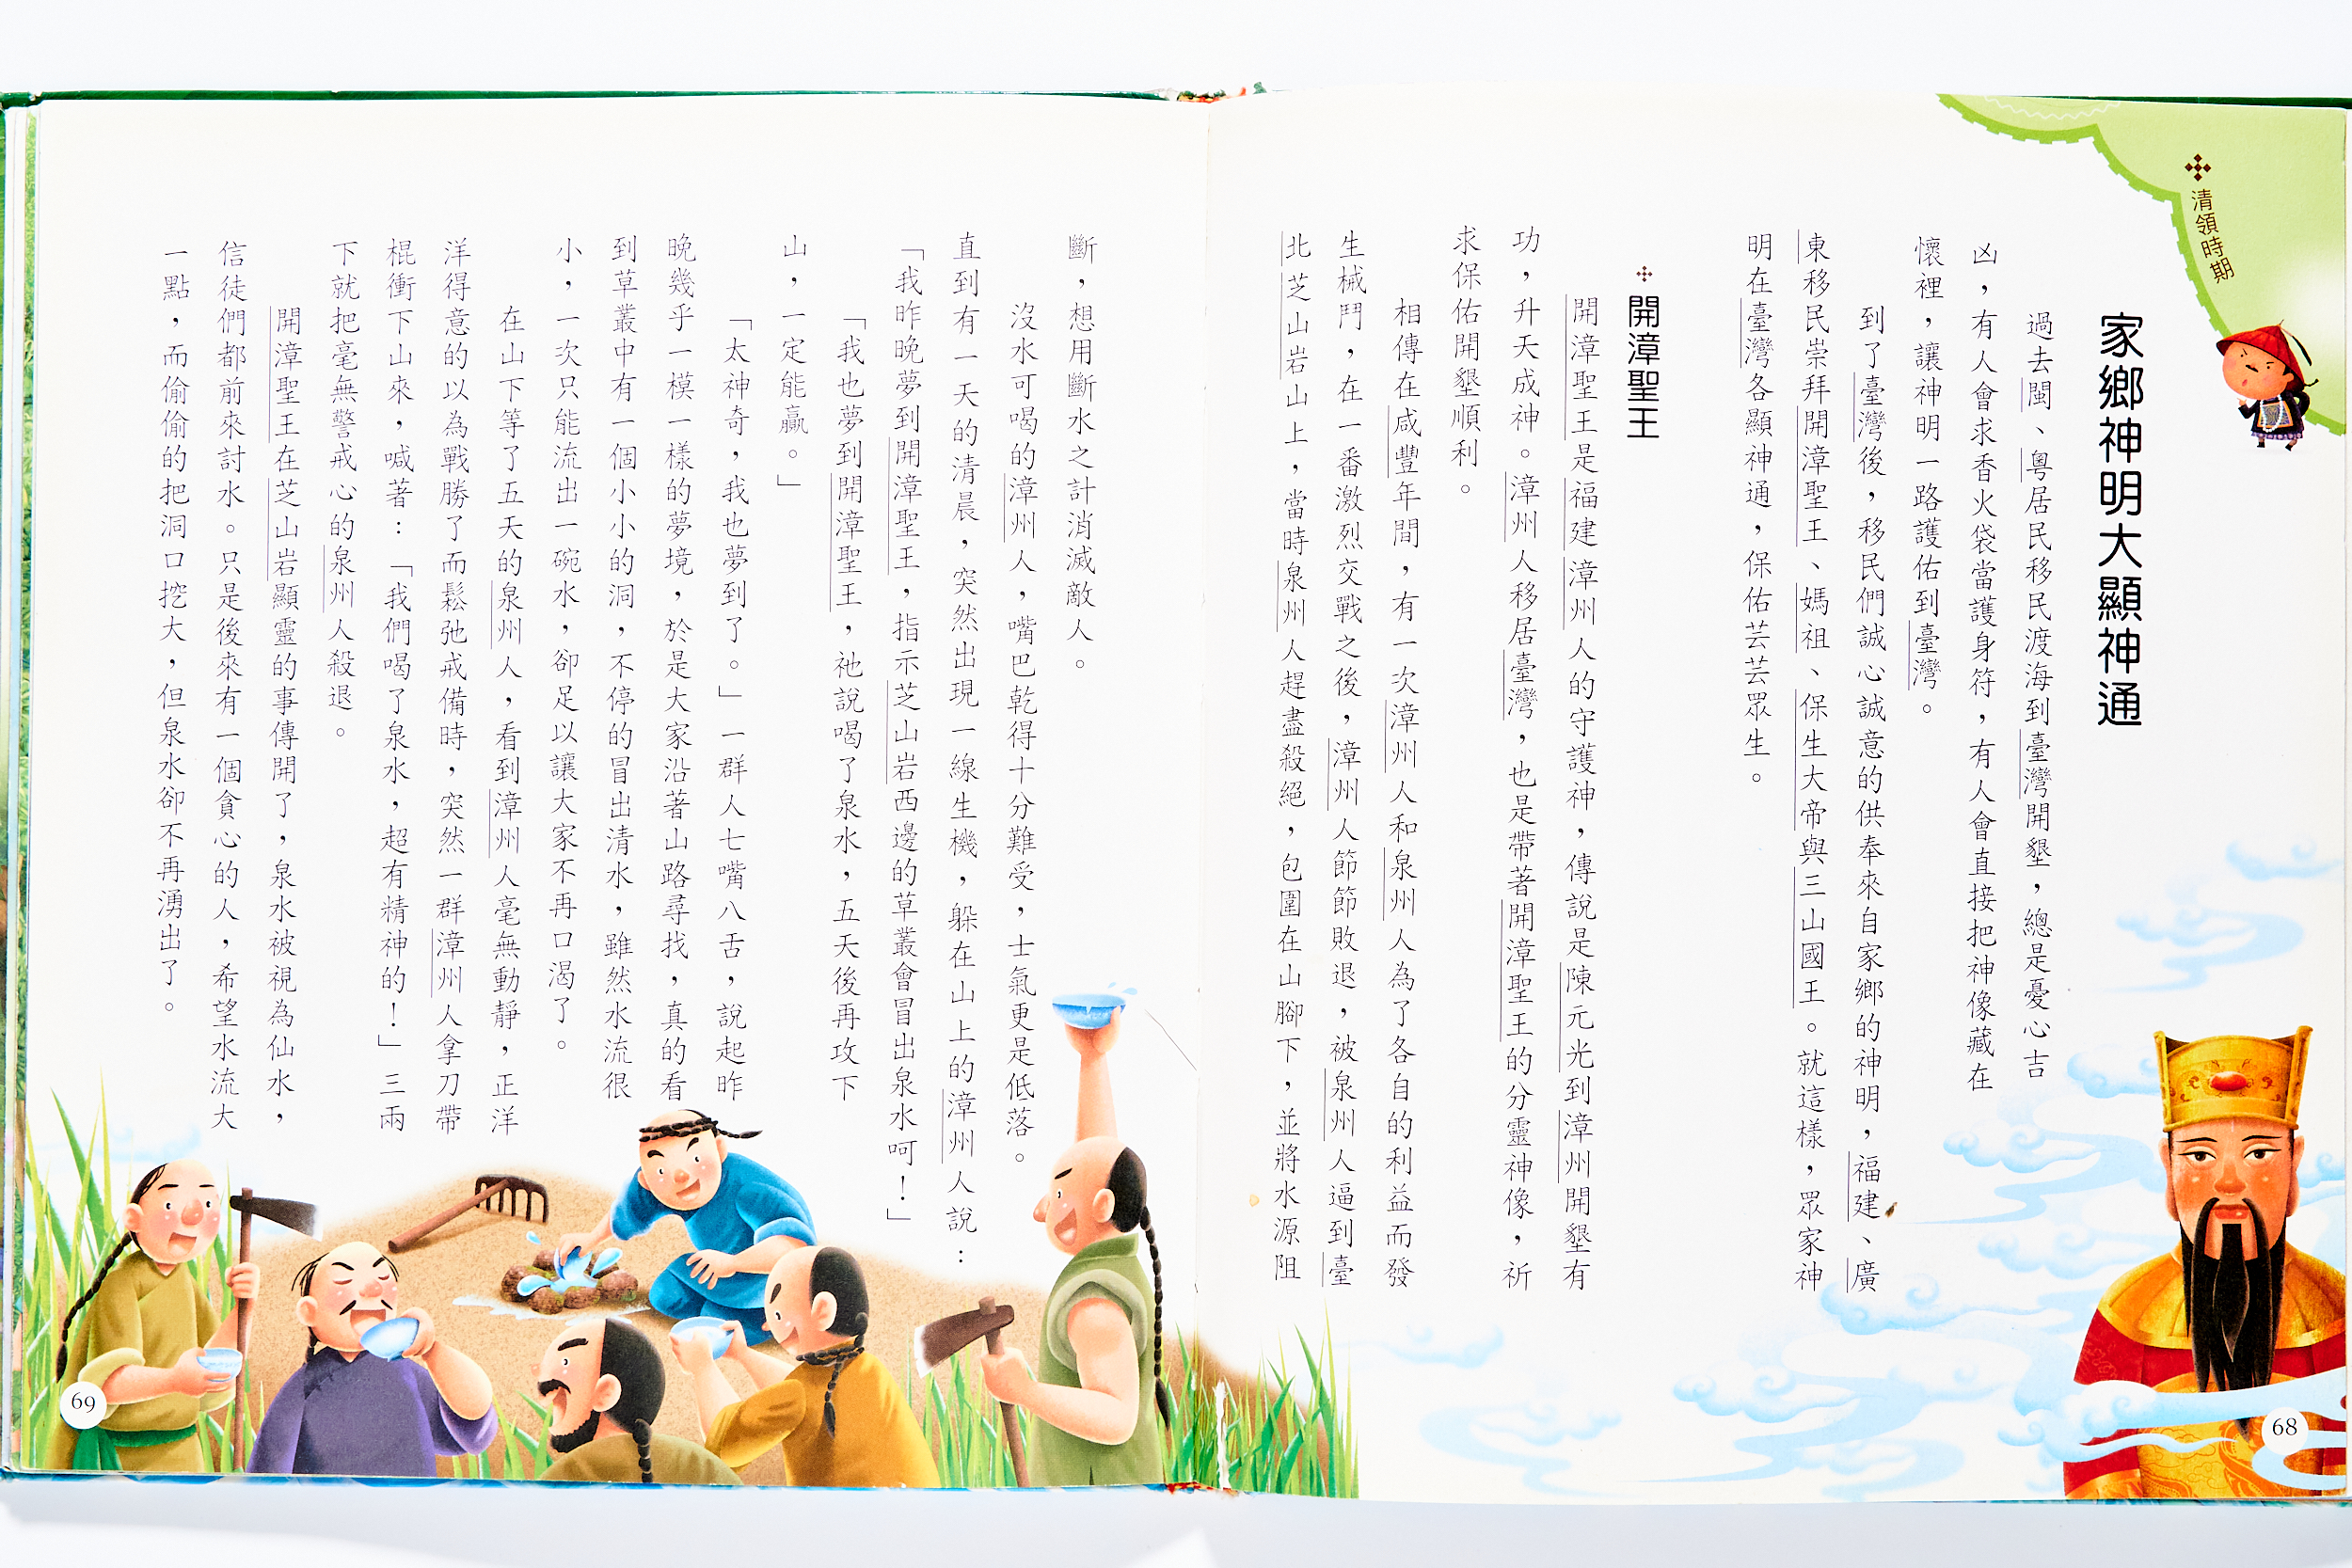 清領時期
家鄉神明大顯神通
過去閩、粵居民移民渡海到臺灣開墾，總是憂心吉
凶，有人會求香火袋當護身符，有人會直接把神像藏在
懷裡，讓神明一路護佑到臺灣。
到了臺灣後，移民們誠心誠意的供奉來自家鄉的神明，福建、廣
東移民崇拜開漳聖王、媽祖、保生大帝與三山國王。就這樣，眾家神
明在臺灣各顯神通，保佑芸芸眾生。
開漳聖王
開漳聖王是福建漳州人的守護神，傳說是陳元光到漳州開墾有
功，升天成神。漳州人移居臺灣，也是帶著開漳聖王的分靈神像，祈
求保佑開墾順利。
相傳在咸豐年間，有一次漳州人和泉州人為了各自的利益而發
生械鬥，在一番激烈交戰之後，漳州人節節敗退，被泉州人逼到臺
北芝山岩山上，當時泉州人趕盡殺絕，包圍在山腳下，並將水源阻
68
斷，想用斷水之計消滅敵人。
沒水可喝的漳州人，嘴巴乾得十分難受，士氣更是低落。
直到有一天的清晨，突然出現一線生機，躲在山上的漳州人說：
「我昨晚夢到開漳聖王，指示芝山岩西邊的草叢會冒出泉水呵！」
「我也夢到開漳聖王，祂說喝了泉水，五天後再攻下
山，一定能贏。」
「太神奇，我也夢到了。」一群人七嘴八舌，說起昨
晚幾乎一模一樣的夢境，於是大家沿著山路尋找，真的看
到草叢中有一個小小的洞，不停的冒出清水，雖然水流很
小，一次只能流出一碗水，卻足以讓大家不再口渴了。
在山下等了五天的泉州人，看到漳州人毫無動靜，正洋
洋得意的以為戰勝了而鬆弛戒備時，突然一群漳州人拿刀帶
棍衝下山來，喊著：「我們喝了泉水，超有精神的！」三兩
下就把毫無警戒心的泉州人殺退。
開漳聖王在芝山岩顯靈的事傳開了，泉水被視為仙水，
信徒們都前來討水。只是後來有一個貪心的人，希望水流大
一點，而偷偷的把洞口挖大，但泉水卻不再湧出了。
69